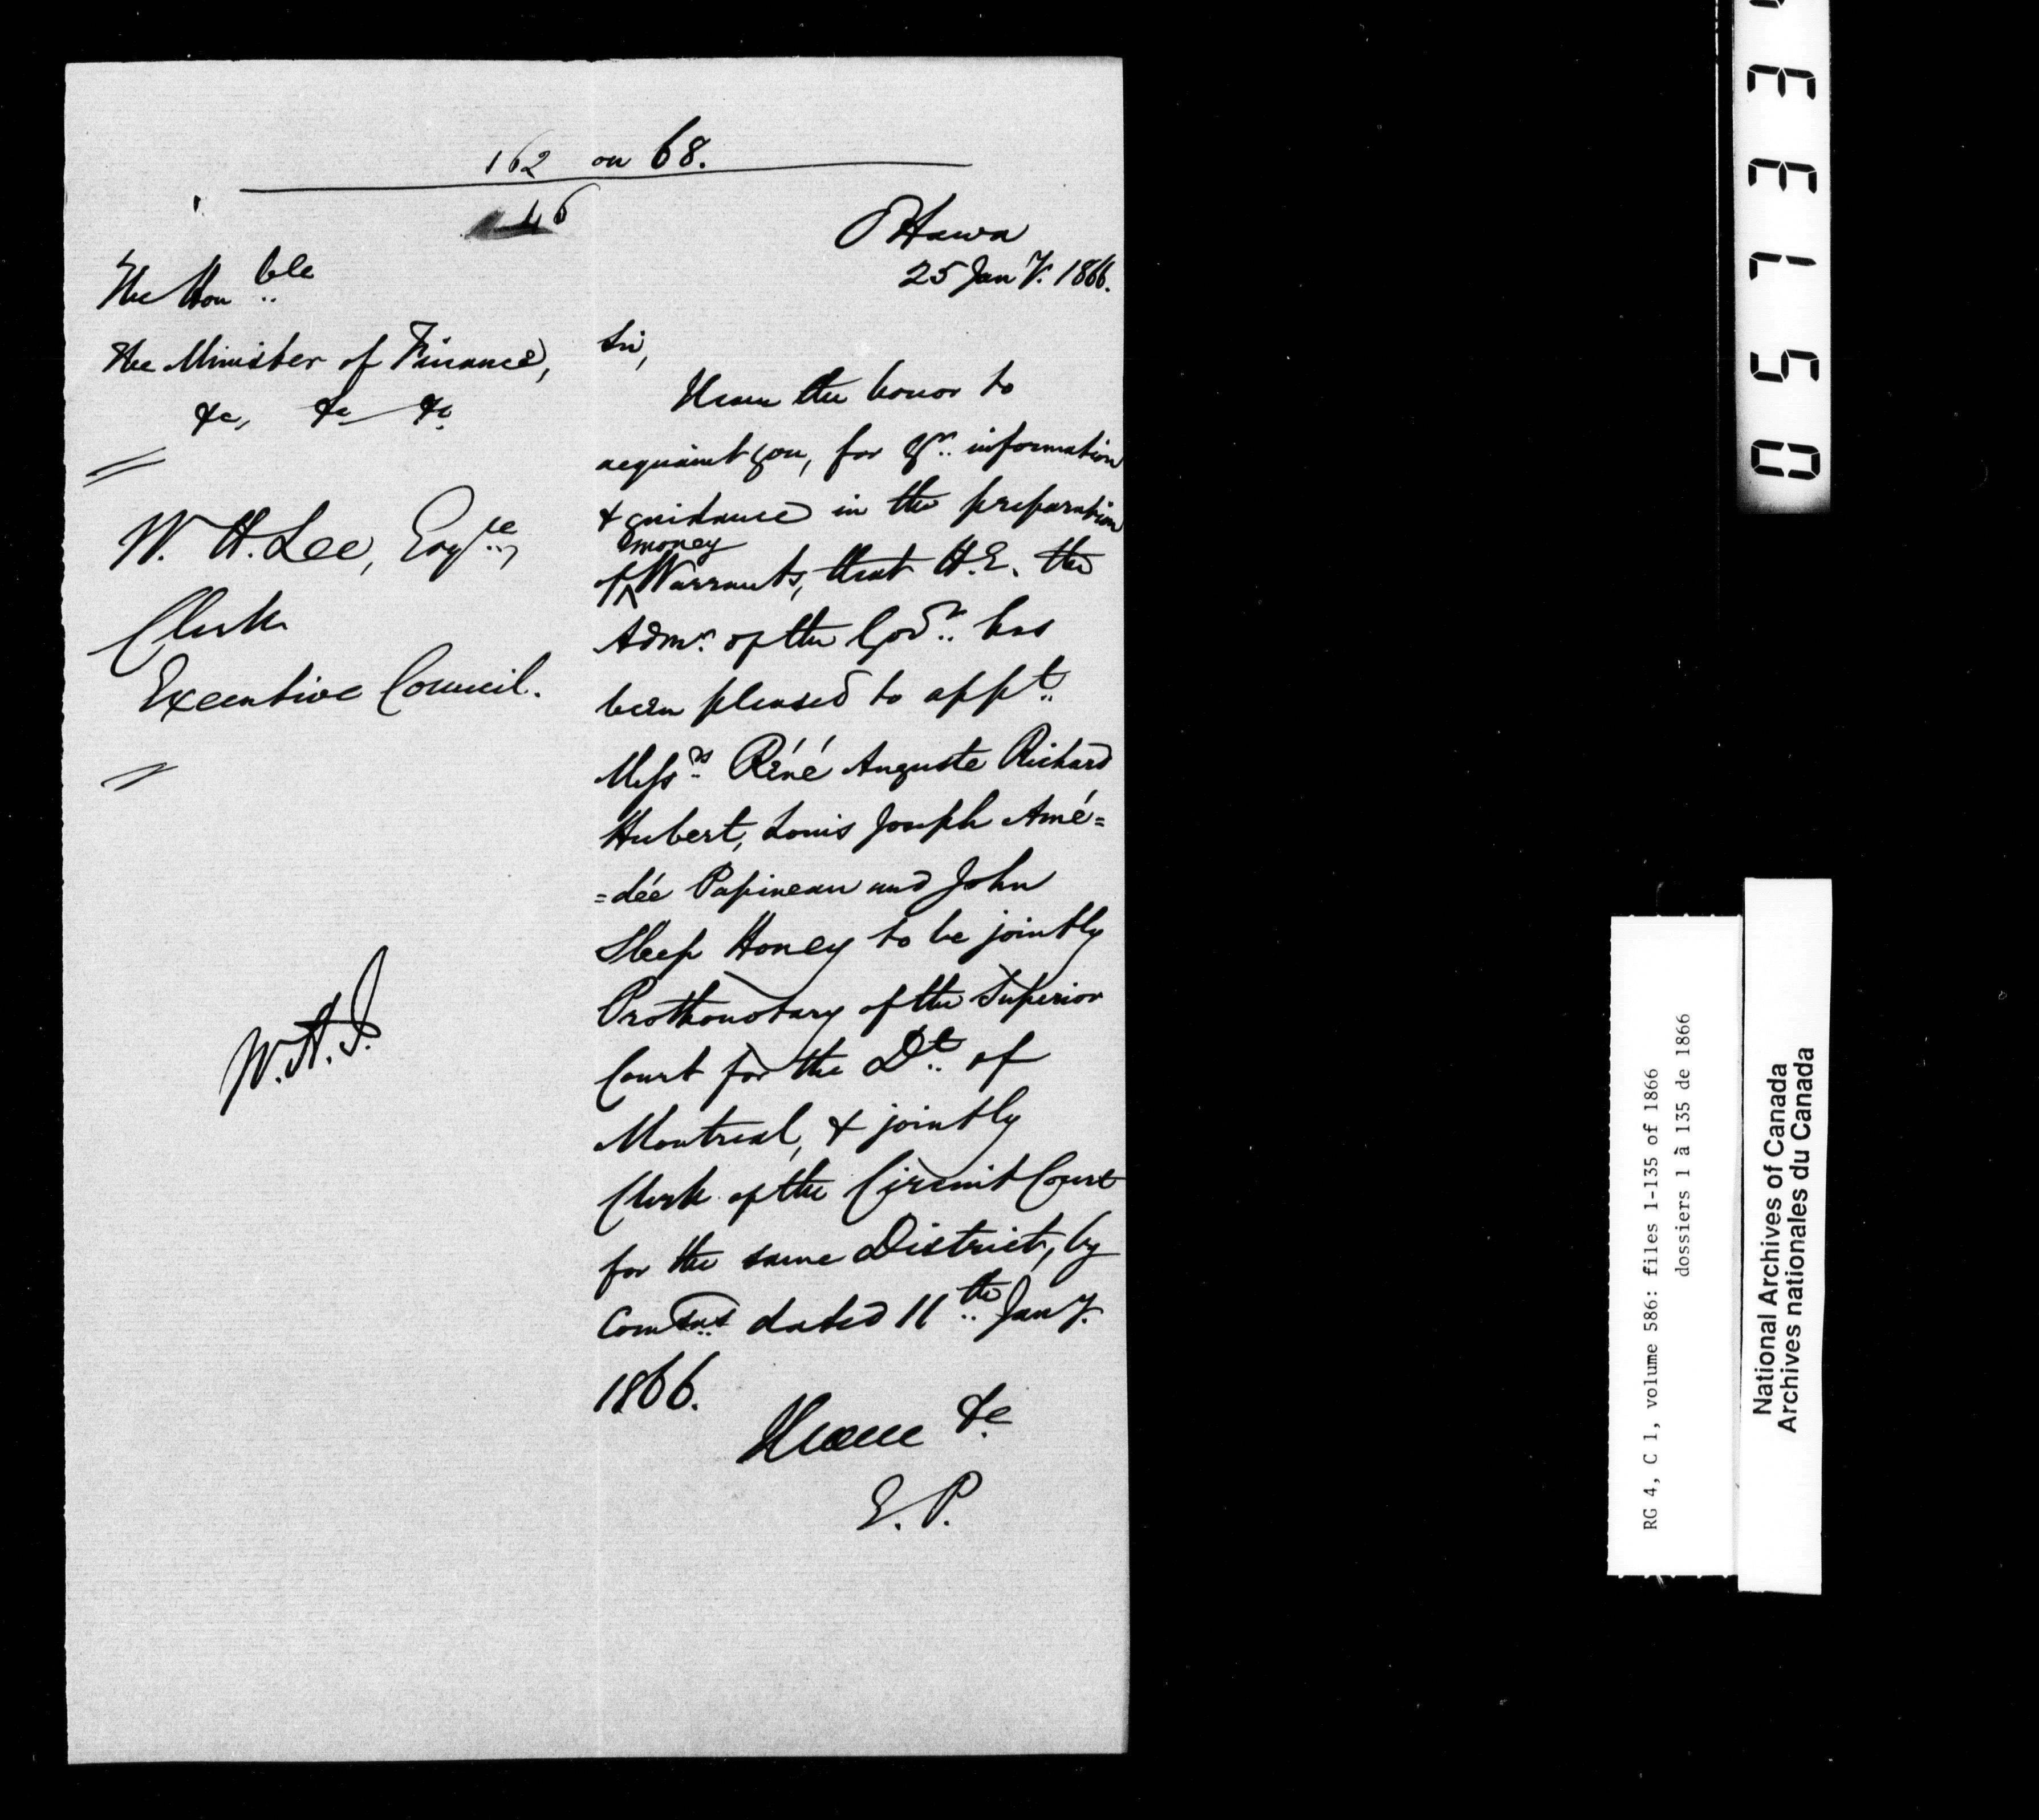 162 on 68.
46
Ottawa
25 Jan'y. 1866.
The Honble
the Minister of Finance,
&c, &c &c
W. H. Lee, Esqre,
Clerk
Executive Council.
W.H.J.
Sir,
I have the honor to
acquaint you, for yr. information
& guidance in the preparation
money
of ^ Warrants, that H.E. the
Admr. of the Govr. has
been pleased to appt.
Messrs. Réné Auguste Richard
Hubert, Louis Joseph Amé=
=dée Papineau and John
Sleep Honey to be jointly
Prothonotary of the Superior
Court for the Dt. of
Montreal, & jointly
Clerk of the Circuit Court
for the same District, by
Comsns dated 11th Jany.
1866.
I have &c
E. P.
RG 4, C 1, volume 586: files 1-135 of 1866
dossiers 1 à 135 de 1866
National Archives of Canada
Archives nationales du Canada